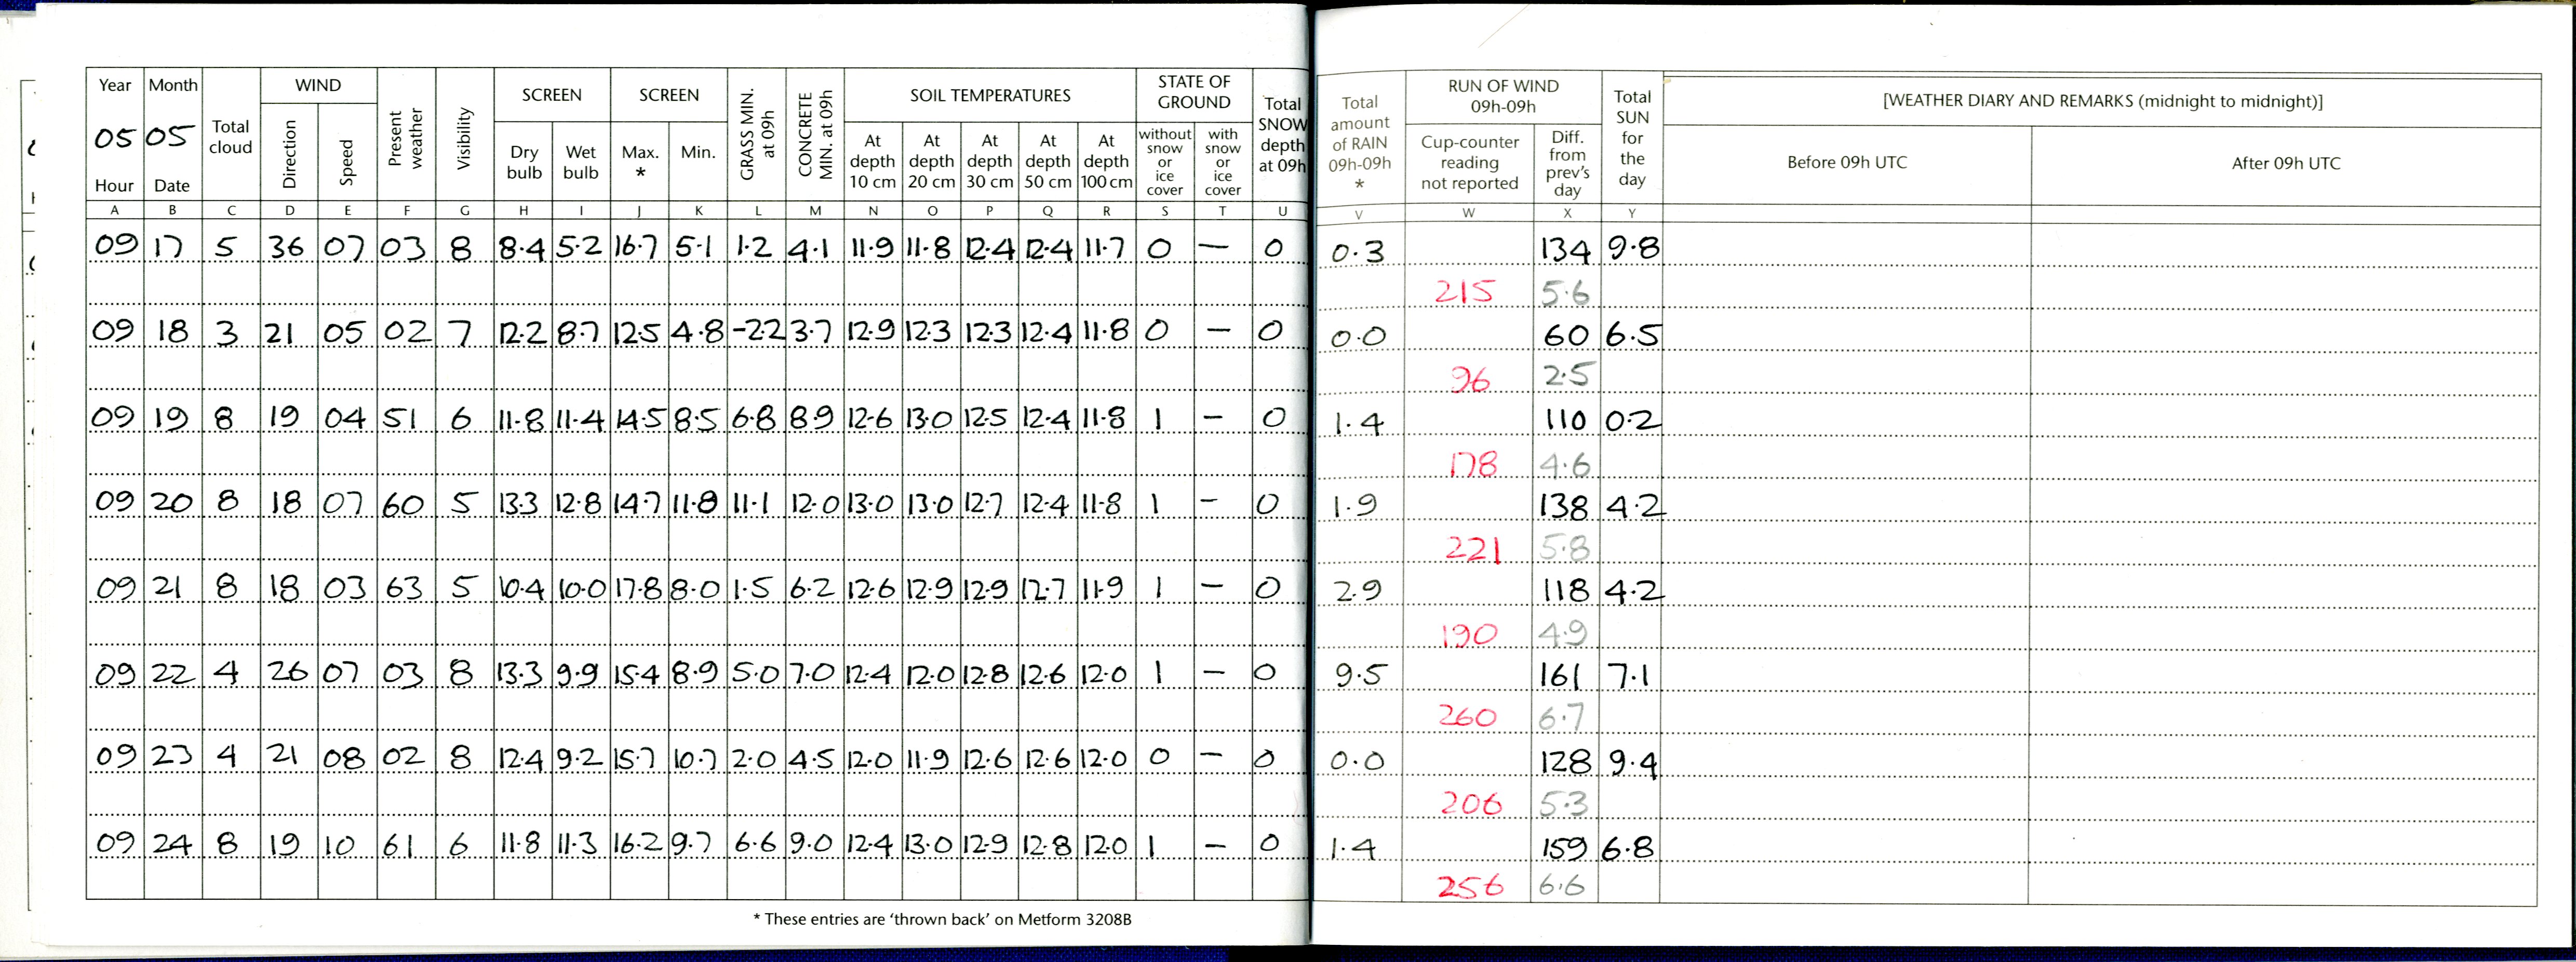 Year Month Total cloud WIND Present weather Visibility SCREEN SCREEN GRASS MIN. at 09h CONCRETE MIN. at 09h SOIL TEMPERATURES STATE OF GROUND Total SNOW depth at 09h Total amount of RAIN 09h-09h * RUN OF WIND 09h-09h Total SUN for the day [WEATHER DIARY AND REMARKS (midnight to midnight)]
05 05 Direction Speed Dry bulb Wet bulb Max. * Min. At depth 10 cm At depth 20 cm At depth 30 cm At depth 50 cm At depth 100 cm without snow or ice cover with snow or ice cover Cup-counter reading not reported Diff. from prev's day Before 09h UTC After 09h UTC
Hour Date
A B C D E F G H I J K L M N O P Q R S T U V W X Y
09 17 5 36 07 03 8 8.4 5.2 16.7 5.1 1.2 4.1 11.9 11.8 12.4 12.4 11.7 0 — 0 0.3 134 9.8
215 5.6
09 18 3 21 05 02 7 12.2 8.7 12.5 4.8 -2.2 3.7 12.9 12.3 12.3 12.4 11.8 0 — 0 0.0 60 6.5
96 2.5
09 19 8 19 04 51 6 11.8 11.4 14.5 8.5 6.8 8.9 12.6 13.0 12.5 12.4 11.8 1 — 0 1.4 110 0.2
178 4.6
09 20 8 18 07 60 5 13.3 12.8 14.7 11.8 11.1 12.0 13.0 13.0 12.7 12.4 11.8 1 — 0 1.9 138 4.2
221 5.8
09 21 8 18 03 63 5 10.4 10.0 17.8 8.0 1.5 6.2 12.6 12.9 12.9 12.7 11.9 1 — 0 2.9 118 4.2
190 4.9
09 22 4 26 07 03 8 13.3 9.9 15.4 8.9 5.0 7.0 12.4 12.0 12.8 12.6 12.0 1 — 0 9.5 161 7.1
260 6.7
09 23 4 21 08 02 8 12.4 9.2 15.7 10.7 2.0 4.5 12.0 11.9 12.6 12.6 12.0 0 — 0 0.0 128 9.4
206 5.3
09 24 8 19 10 61 6 11.8 11.3 16.2 9.7 6.6 9.0 12.4 13.0 12.9 12.8 12.0 1 — 0 1.4 159 6.8
256 6.6
* These entries are 'thrown back' on Metform 3208B